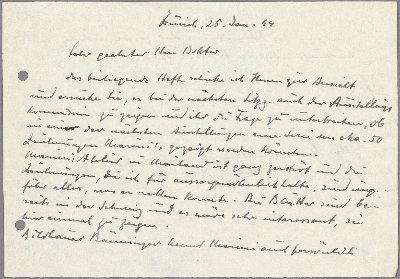 Zürich, 25. Jan. 44
Sehr geehrter Herr Doktor
das beiliegende Heft schicke ich Ihnen zur Ansicht
und ersuche Sie, es bei der nächsten Sitzg. auch der Ausstellungs
kommission zu zeigen und ihr die Frage zu unterbreiten, ob
in einer der nächsten Ausstellungen eine Serie von cka. 50
Zeichnungen Marini's gezeigt werden könnten.
Marini's Atelier in Mailand ist ganz zerstört und die
Zeichnungen, die ich für aussergewöhnlich halte, sind ung-
fähr alles, was er retten konnte. Die Blätter sind be-
reits in der Schweiz und es wäre sehr interessant, sie
hier einmal zu zeigen.
Bildhauer Bänninger kennt Marini auch persönlich